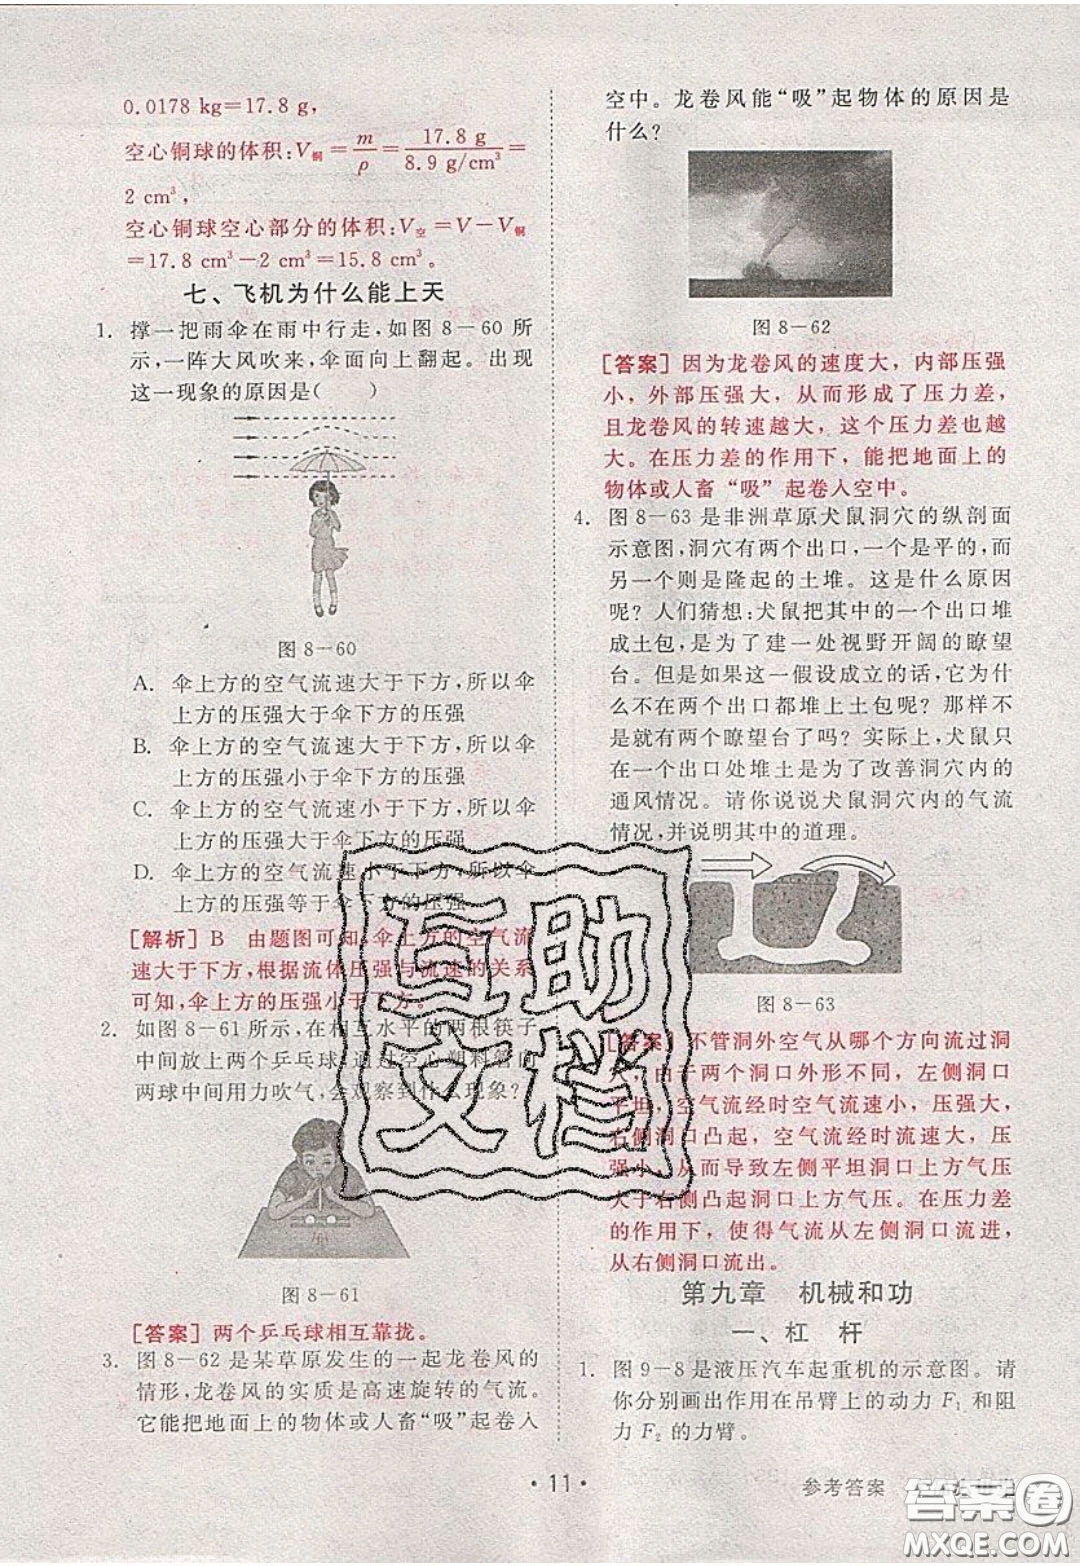 0.0178 kg=17.8 g，
空心铜球的体积：V铜=m/ρ=17.8 g/8.9 g/cm³=
2 cm³，
空心铜球空心部分的体积：V空=V−V铜
=17.8 cm³−2 cm³=15.8 cm³。
七、飞机为什么能上天
1. 撑一把雨伞在雨中行走，如图8－60所
示，一阵大风吹来，伞面向上翻起。出现
这一现象的原因是(　　)
图8－60
A. 伞上方的空气流速大于下方，所以伞
上方的压强大于伞下方的压强
B. 伞上方的空气流速大于下方，所以伞
上方的压强小于伞下方的压强
C. 伞上方的空气流速小于下方，所以伞
上方的压强大于伞下方的压强
D. 伞上方的空气流速小于下方，所以伞
上方的压强等于伞下方的压强
[解析] B　由题图可知，伞上方的空气流
速大于下方，根据流体压强与流速的关系
可知，伞上方的压强小于下方。
2. 如图8－61所示，在相互水平的两根筷子
中间放上两个乒乓球，通过空心塑料管向
两球中间用力吹气，会观察到什么现象？
图8－61
[答案] 两个乒乓球相互靠拢。
3. 图8－62是某草原发生的一起龙卷风的
情形，龙卷风的实质是高速旋转的气流。
它能把地面上的物体或人畜“吸”起卷入
空中。龙卷风能“吸”起物体的原因是
什么？
图8－62
[答案] 因为龙卷风的速度大，内部压强
小，外部压强大，从而形成了压力差，
且龙卷风的转速越大，这个压力差也越
大。在压力差的作用下，能把地面上的
物体或人畜“吸”起卷入空中。
4. 图8－63是非洲草原犬鼠洞穴的纵剖面
示意图，洞穴有两个出口，一个是平的，而
另一个则是隆起的土堆。这是什么原因
呢？人们猜想：犬鼠把其中的一个出口堆
成土包，是为了建一处视野开阔的瞭望
台。但是如果这一假设成立的话，它为什
么不在两个出口都堆上土包呢？那样不
是有两个瞭望台了吗？实际上，犬鼠只
在一个出口处堆土是为了改善洞穴内的
通风情况。请你说说犬鼠洞穴内的气流
情况，并说明其中的道理。
图8－63
[答案] 不管洞外空气从哪个方向流过洞
，由于两个洞口外形不同，左侧洞口
平坦，空气流经时空气流速小，压强大，
右侧洞口凸起，空气流经时流速大，压
强小，从而导致左侧平坦洞口上方气压
大于右侧凸起洞口上方气压。在压力差
的作用下，使得气流从左侧洞口流进，
从右侧洞口流出。
第九章　机械和功
一、杠　杆
1. 图9－8是液压汽车起重机的示意图。请
你分别画出作用在吊臂上的动力 F₁ 和阻
力 F₂ 的力臂。
·11·
参考答案
互助
文档
答案圈
MXQE.COM